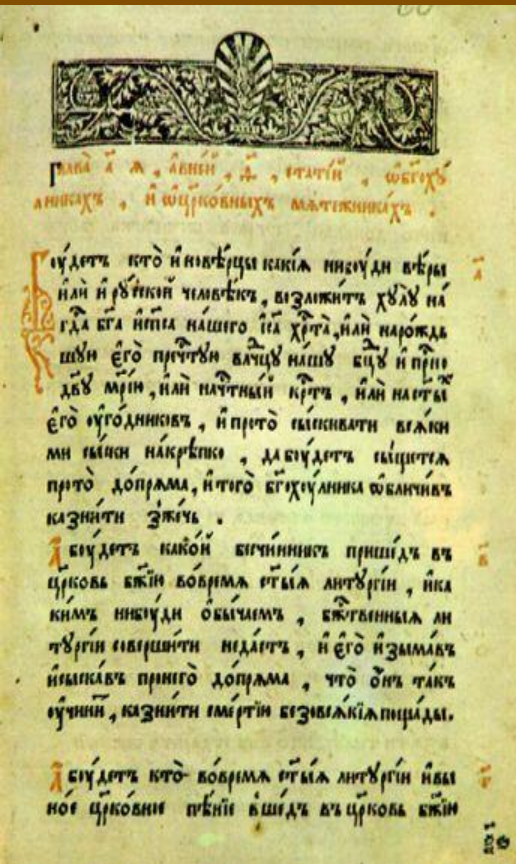 Глава̀ а҃ я , а҆вне́й , ѳ҃ , статі́й , ѡ҆бг҃охꙋ́
лникахъ , и҆ ѡ҆цр҃ко́вныхъ мѧте́жникахъ .
Бꙋ́детъ кто̀ и҆нове́рцы какі́ѧ нибꙋ́ди вѣ́ры
и҆лѝ и҆ рꙋ́ской человѣ́къ , возложи́тъ хꙋлꙋ на́
гд҃а бг҃а и҆ сп҃са на́шего і҆с҃а хр҃та̀ , и҆лѝ наро́жд
шꙋю е҆го̀ преч҃тꙋю влч҃цꙋ на́шꙋ бц҃ꙋ и҆ прно
дв҃ꙋ мр҃ію , и҆лѝ начтⷭ҇ны́й крⷭ҇тъ , и҆лѝ насты҃ⷯ
е҆го̀ ᲂу҆го́дниковъ , и҆ прото̀ сы́скивати всѧ́ки
ми сы́ски на́крѣпко , да бꙋ́детъ сы́щетсѧ
прото̀ до́прѧма , и҆ того̀ бг҃охꙋ́лника ѡ҆бличи́въ
казни́ти зже́чь .
а҆ бꙋ́детъ како́й безчи́нникъ прише́дъ въ
цр҃ковь бж҃їю во́времѧ ст҃ы́ѧ литꙋргі́и , и҆ка
ки́мъ нибꙋ́ди ѻ҆бы́чаемъ , бжⷭ҇твенныѧ ли
тꙋргі́и соверши́ти неда́стъ , и҆ е҆го̀ и҆зыма́въ
и҆сыска́въ пронего̀ до́прѧма , что̀ ѻ҆́нъ та́къ
ᲂу҆чини́тъ , казни́ти сме́ртїю безовсѧ́кїѧ поща́ды .
а҆ бꙋ́детъ кто̀ во́времѧ ст҃ы́ѧ литꙋргі́и и҆вы
но́е цр҃ко́вное пѣ́нїе вше́дъ въ цр҃ковь бж҃їю
а҃
в҃
г҃